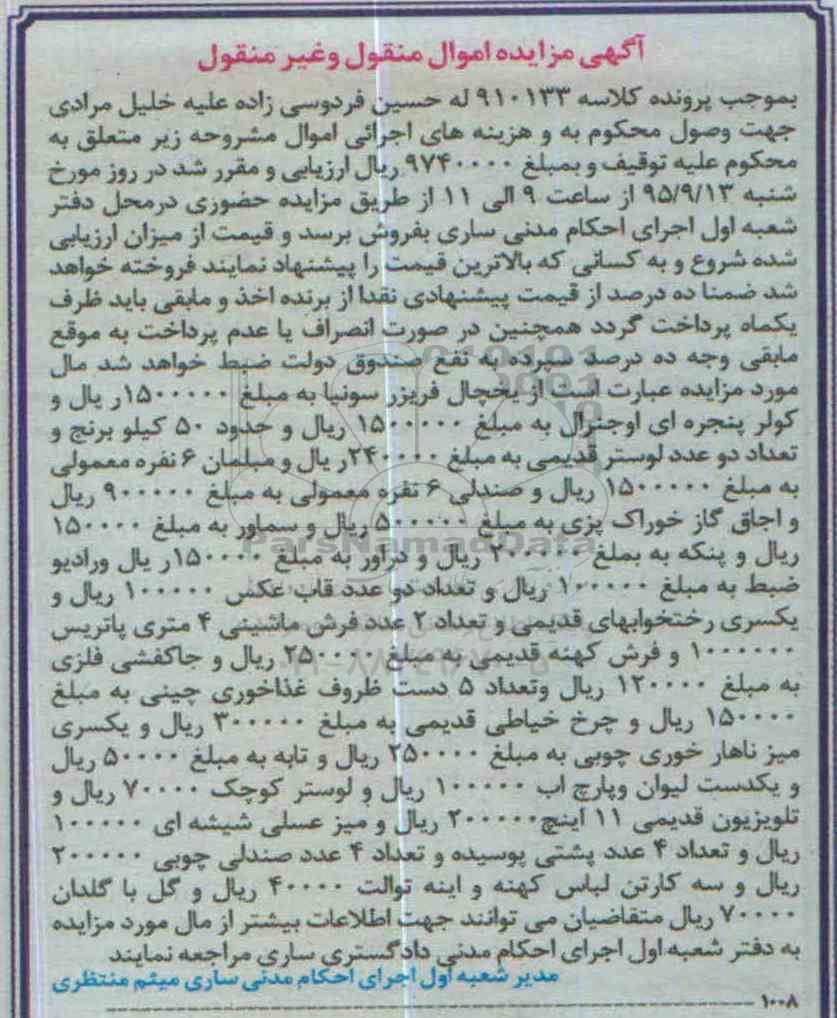 آگهی مزایده اموال منقول وغیر منقول
بموجب پرونده کلاسه ۹۱۰۱۳۳ له حسین فردوسی زاده علیه خلیل مرادی
جهت وصول محکوم به و هزینه های اجرائی اموال مشروحه زیر متعلق به
محکوم علیه توقیف و بمبلغ ۹۷۴۰۰۰۰ ریال ارزیابی و مقرر شد در روز مورخ
شنبه ۹۵/۹/۱۳ از ساعت ۹ الی ۱۱ از طریق مزایده حضوری درمحل دفتر
شعبه اول اجرای احکام مدنی ساری بفروش برسد و قیمت از میزان ارزیابی
شده شروع و به کسانی که بالاترین قیمت را پیشنهاد نمایند فروخته خواهد
شد ضمنا ده درصد از قیمت پیشنهادی نقدا از برنده اخذ و مابقی باید ظرف
یکماه پرداخت گردد همچنین در صورت انصراف یا عدم پرداخت به موقع
مابقی وجه ده درصد سپرده به نفع صندوق دولت ضبط خواهد شد مال
مورد مزایده عبارت است از یخچال فریزر سونیا به مبلغ ۱۵۰۰۰۰۰۰ر یال و
کولر پنجره ای اوجنرال به مبلغ ۱۵۰۰۰۰۰۰ ریال و حدود ۵۰ کیلو برنج و
تعداد دو عدد لوستر قدیمی به مبلغ ۲۴۰۰۰۰ر یال و مبلمان ۶ نفره معمولی
به مبلغ ۱۵۰۰۰۰۰۰ ریال و صندلی ۶ نفره معمولی به مبلغ ۹۰۰۰۰۰۰ ریال
و اجاق گاز خوراک پزی به مبلغ ۵۰۰۰۰۰۰ ریال و سماور به مبلغ ۱۵۰۰۰۰۰
ریال و پنکه به بملغ ۲۰۰۰۰۰ ریال و دراور به مبلغ ۱۵۰۰۰۰۰ر یال ورادیو
ضبط به مبلغ ۱۰۰۰۰۰۰ ریال و تعداد دو عدد قاب عکس ۱۰۰۰۰۰۰ ریال و
یکسری رختخوابهای قدیمی و تعداد ۲ عدد فرش ماشینی ۴ متری پاتریس
۱۰۰۰۰۰۰۰ و فرش کهنه قدیمی به مبلغ ۲۵۰۰۰۰۰ ریال و جاکفشی فلزی
به مبلغ ۱۲۰۰۰۰۰ ریال وتعداد ۵ دست ظروف غذاخوری چینی به مبلغ
۱۵۰۰۰۰۰ ریال و چرخ خیاطی قدیمی به مبلغ ۳۰۰۰۰۰۰ ریال و یکسری
میز ناهار خوری چوبی به مبلغ ۲۵۰۰۰۰۰ ریال و تابه به مبلغ ۵۰۰۰۰۰ ریال
و یکدست لیوان وپارچ اب ۱۰۰۰۰۰۰ ریال و لوستر کوچک ۷۰۰۰۰۰ ریال و
تلویزیون قدیمی ۱۱ اینچ۲۰۰۰۰۰۰ ریال و میز عسلی شیشه ای ۱۰۰۰۰۰۰
ریال و تعداد ۴ عدد پشتی پوسیده و تعداد ۴ عدد صندلی چوبی ۲۰۰۰۰۰۰
ریال و سه کارتن لباس کهنه و اینه توالت ۴۰۰۰۰۰ ریال و گل با گلدان
۷۰۰۰۰۰ ریال متقاضیان می توانند جهت اطلاعات بیشتر از مال مورد مزایده
به دفتر شعبه اول اجرای احکام مدنی دادگستری ساری مراجعه نمایند
مدیر شعبه اول اجرای احکام مدنی ساری میثم منتظری
۱۰۰۸
ParsNamadData